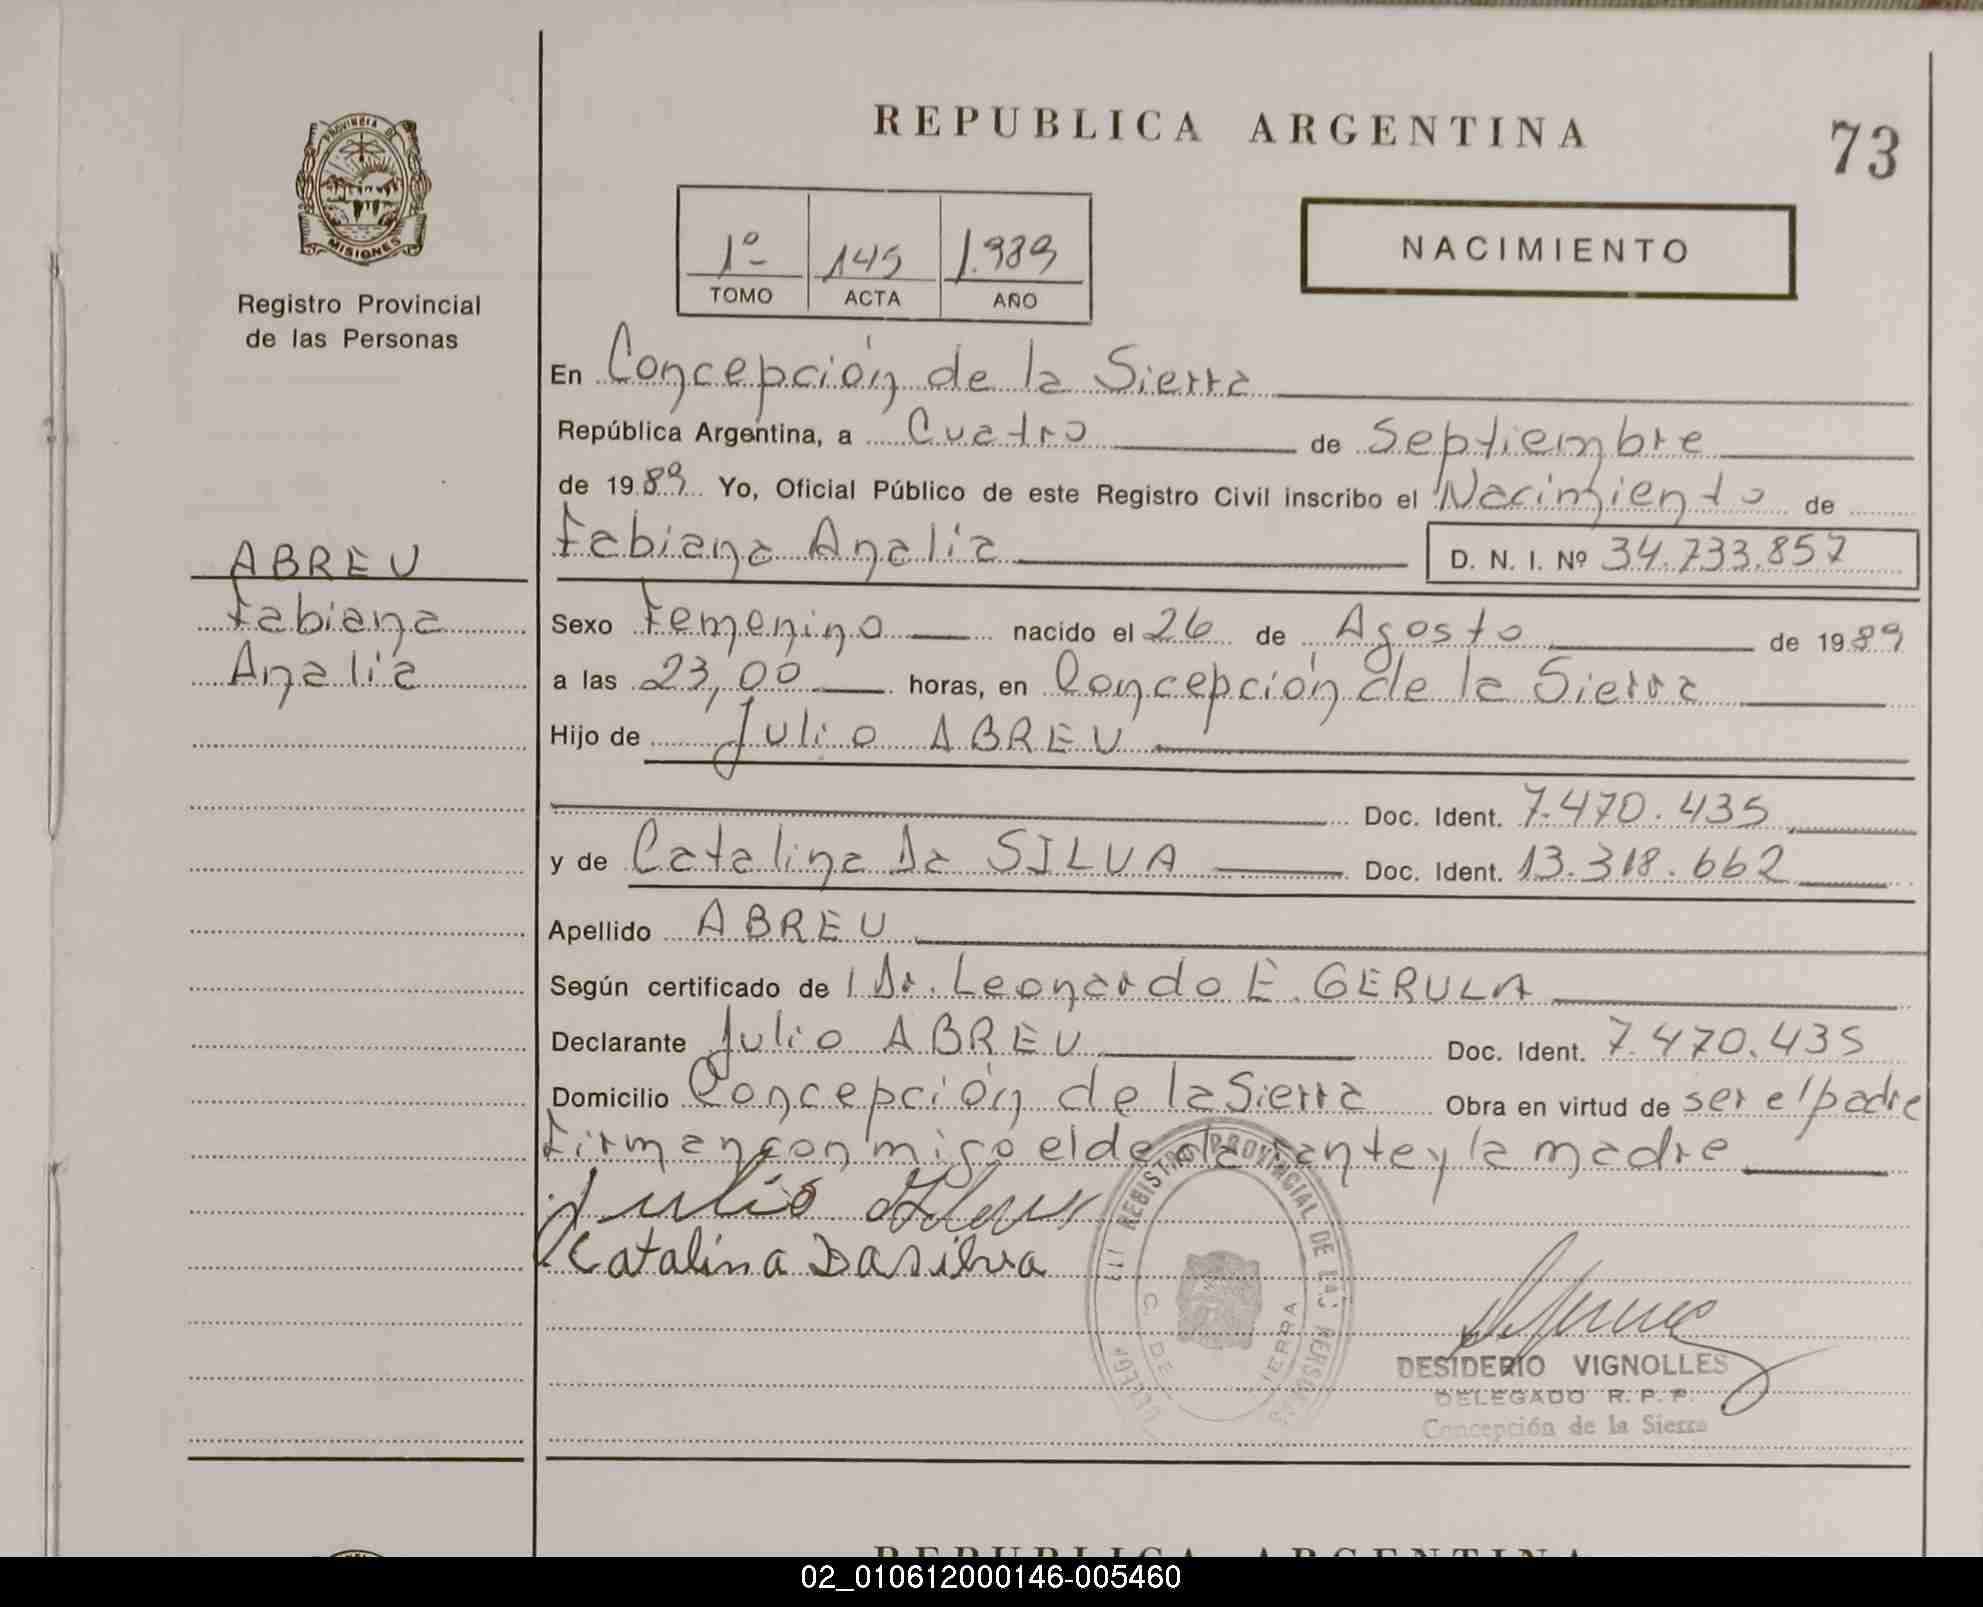 REPUBLICA ARGENTINA
73
PROVINCIA DE
MISIONES
Registro Provincial
de las Personas
1º 145 1.989
TOMO ACTA AÑO
NACIMIENTO
En Concepción de la Sierra
República Argentina, a Cuatro de Septiembre
de 1989 Yo, Oficial Público de este Registro Civil inscribo el Nacimiento de
Fabiana Analia D. N. I. Nº 34.733.857
ABREU
Fabiana
Analia
Sexo Femenino nacido el 26 de Agosto de 1989
a las 23,00 horas, en Concepción de la Sierra
Hijo de Julio ABREU
Doc. Ident. 7.470.435
y de Catalina Da SILVA Doc. Ident. 13.318.662
Apellido ABREU
Según certificado de l Dr. Leonardo E. GERULA
Declarante Julio ABREU Doc. Ident. 7.470.435
Domicilio Concepción de la Sierra Obra en virtud de ser el padre
Firman conmigo el declarante y la madre
Julio Abreu
Catalina Dasilva
REGISTRO PROVINCIAL DE LAS PERSONAS
C. DE IERRA
DESIDERIO VIGNOLLES
DELEGADO R. P. P.
Concepción de la Sierra
REPUBLICA ARGENTINA
02_010612000146-005460